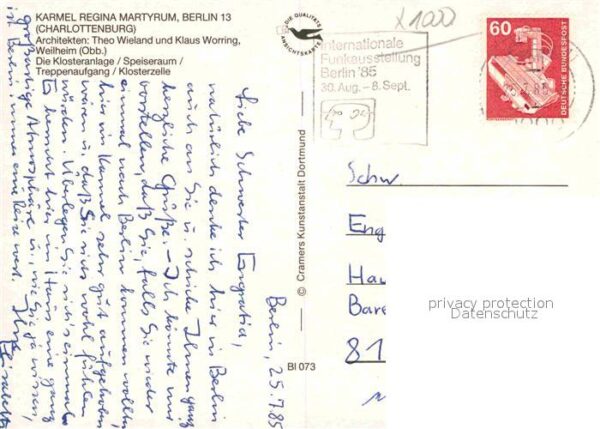 KARMEL REGINA MARTYRUM, BERLIN 13
(CHARLOTTENBURG)
Architekten: Theo Wieland und Klaus Worring,
Weilheim (Obb.)
Die Klosteranlage / Speiseraum /
Treppenaufgang / Klosterzelle
DIE QUALITÄTS
ANSICHTSKARTE
X1000
Internationale
Funkausstellung
Berlin '85
30. Aug. – 8. Sept.
60
DEUTSCHE BUNDESPOST
Berlin, 25.7.85
Liebe Schwester Engratia,
natürlich denke ich hier in Berlin
auch an Sie u. schicke Ihnen ganz
herzliche Grüße. – Ich könnte mir
vorstellen, daß Sie, falls Sie wieder
einmal nach Berlin kommen wollen
hier im Karmel sehr gut aufgehoben
wären u. daß Sie sich wohl fühlen
würden. Überlegen Sie sich's einmal
Es herrscht hier im Haus eine ganz
großartige Atmosphäre u., wie Sie ja wissen,
ist Berlin immer eine Reise wert. Ihre
Elisabeth
© Cramers Kunstanstalt Dortmund
BI 073
Schw.
Eng
Hau
Bare
81
privacy protection
Datenschutz